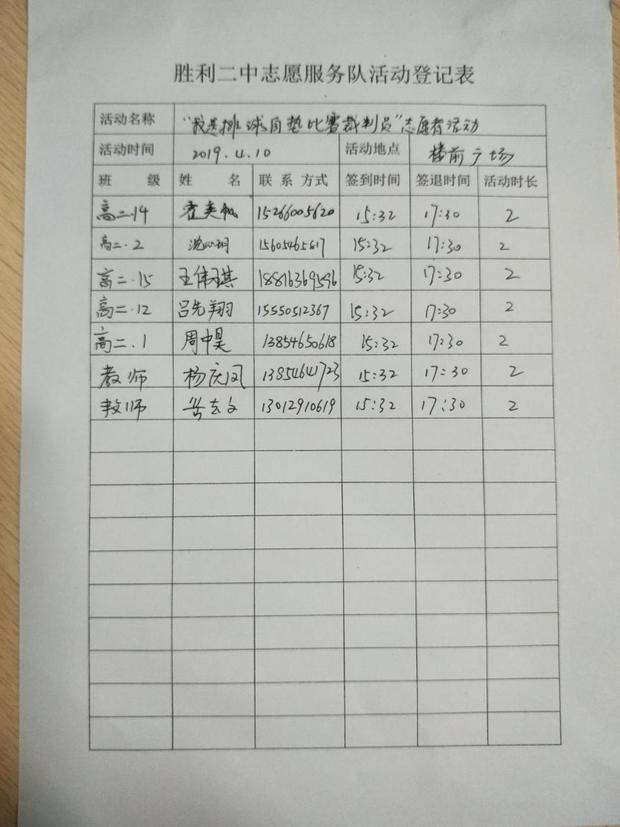 胜利二中志愿服务队活动登记表
活动名称 “我是排球自垫比赛裁判员”志愿者活动
活动时间 2019.4.10 活动地点 楼前广场
班 级 姓 名 联 系 方式 签到时间 签退时间 活动时长
高二.14 15266005620 15:32 17:30 2
高二.2 15605465617 15:32 17:30 2
高二.15 王伟琪 15:32 17:30 2
高二.12 吕先翔 15550512367 15:32 17:30 2
高二.1 周中昊 13854650618 15:32 17:30 2
教师 杨庆凤 13854641723 15:32 17:30 2
教师 13012910619 15:32 17:30 2